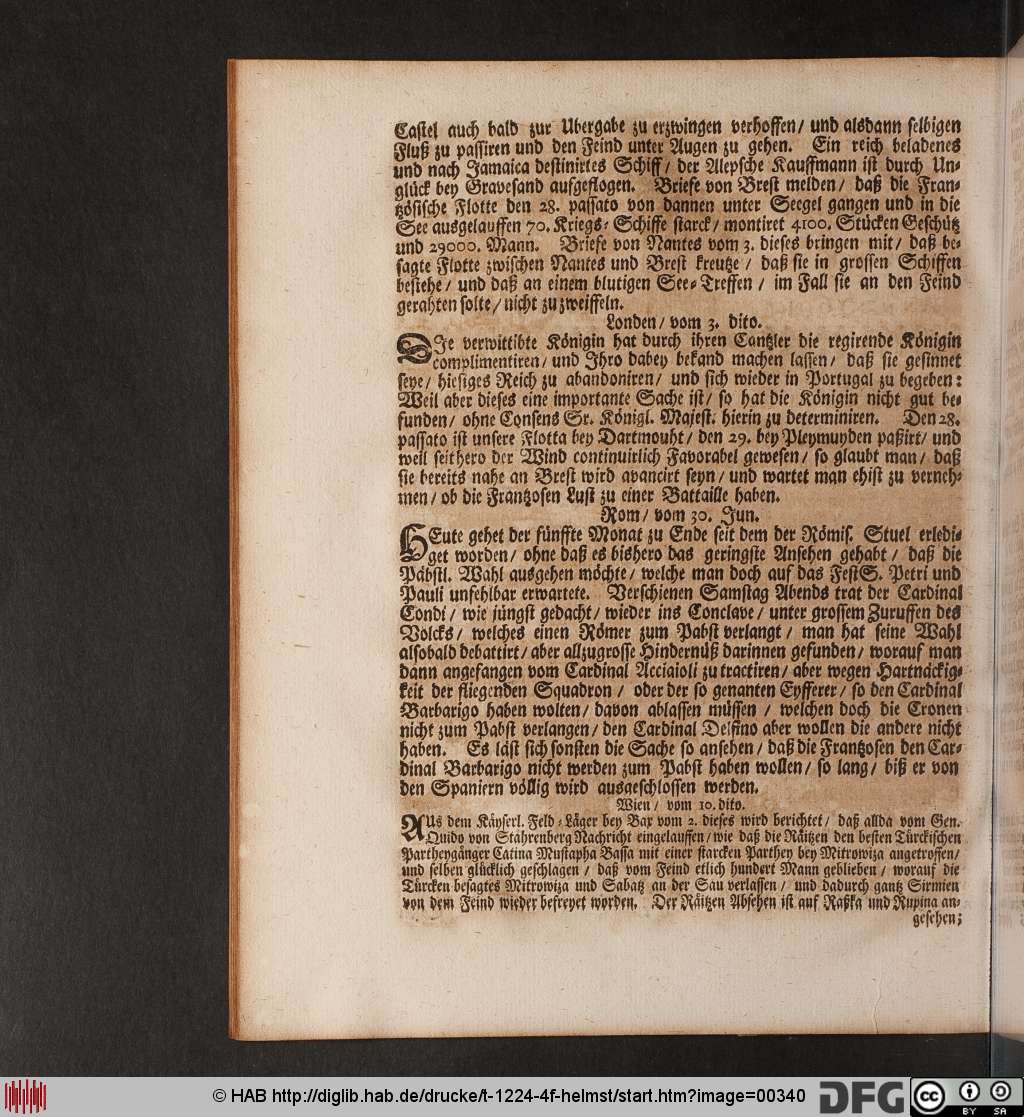 Castel auch bald zur Ubergabe zu erzwingen verhoffen/ und alsdann selbigen
Fluß zu passiren und den Feind unter Augen zu gehen. Ein reich beladenes
und nach Jamaica destinirtes Schiff/ der Alepsche Kauffmann ist durch Un-
glück bey Gravesand aufgeflogen. Briefe von Brest melden/ daß die Fran-
tzösische Flotte den 28. passato von dannen unter Seegel gangen und in die
See ausgelauffen 70. Kriegs-Schiffe starck/ montiret 4100. Stücken Geschütz
und 29000. Mann. Briefe von Nantes vom 3. dieses bringen mit/ daß be-
sagte Flotte zwischen Nantes und Brest kreutze/ daß sie in grossen Schiffen
bestehe/ und daß an einem blutigen See-Treffen/ im Fall sie an den Feind
gerahten solte/ nicht zu zweiffeln.
Londen/ vom 3. dito.
DIe verwittibte Königin hat durch ihren Cantzler die regirende Königin
complimentiren/ und Ihro dabey bekand machen lassen/ daß sie gesinnet
seye/ hiesiges Reich zu abandoniren/ und sich wieder in Portugal zu begeben:
Weil aber dieses eine importante Sache ist/ so hat die Königin nicht gut be-
funden/ ohne Consens Sr. Königl. Majest. hierin zu determiniren. Den 28.
passato ist unsere Flotta bey Dartmouht/ den 29. bey Pleymuyden paßirt/ und
weil seithero der Wind continuirlich Favorabel gewesen/ so glaubt man/ daß
sie bereits nahe an Brest wird avancirt seyn/ und wartet man ehist zu verneh-
men/ ob die Frantzosen Lust zu einer Battaille haben.
Rom/ vom 30. Jun.
HEute gehet der fünffte Monat zu Ende seit dem der Römis. Stuel erledi-
get worden/ ohne daß es bishero das geringste Ansehen gehabt/ daß die
Päbstl. Wahl ausgehen möchte/ welche man doch auf das Fest S. Petri und
Pauli unfehlbar erwartete. Verschienen Samstag Abends trat der Cardinal
Condi/ wie jüngst gedacht/ wieder ins Conclave/ unter grossem Zuruffen des
Volcks/ welches einen Römer zum Pabst verlangt/ man hat seine Wahl
alsobald debattirt/ aber allzugrosse Hindernüß darinnen gefunden/ worauf man
dann angefangen vom Cardinal Acciaioli zu tractiren/ aber wegen Hartnäckig-
keit der fliegenden Squadron/ oder der so genanten Eyfferer/ so den Cardinal
Barbarigo haben wolten/ davon ablassen müssen/ welchen doch die Cronen
nicht zum Pabst verlangen/ den Cardinal Delfino aber wollen die andere nicht
haben. Es läst sich sonsten die Sache so ansehen/ daß die Frantzosen den Car-
dinal Barbarigo nicht werden zum Pabst haben wollen/ so lang/ biß er von
den Spaniern völlig wird ausgeschlossen werden.
Wien/ vom 10. dito.
AUs dem Käyserl. Feld-Läger bey Bax vom 2. dieses wird berichtet/ daß allda vom Gen.
Quido von Stahrenberg Nachricht eingelauffen/ wie daß die Räitzen den besten Türckischen
Partheygänger Catina Mustapha Bassa mit einer starcken Parthey bey Mitrowiza angetroffen/
und selben glücklich geschlagen/ daß vom Feind etlich hundert Mann geblieben/ worauf die
Türcken besagtes Mitrowiza und Sabatz an der Sau verlassen/ und dadurch gantz Sirmien
von dem Feind wieder befreyet worden. Der Räitzen Absehen ist auf Raßka und Rupina an-
gesehen;
© HAB http://diglib.hab.de/drucke/t-1224-4f-helmst/start.htm?image=00340
DFG
cc
BY SA